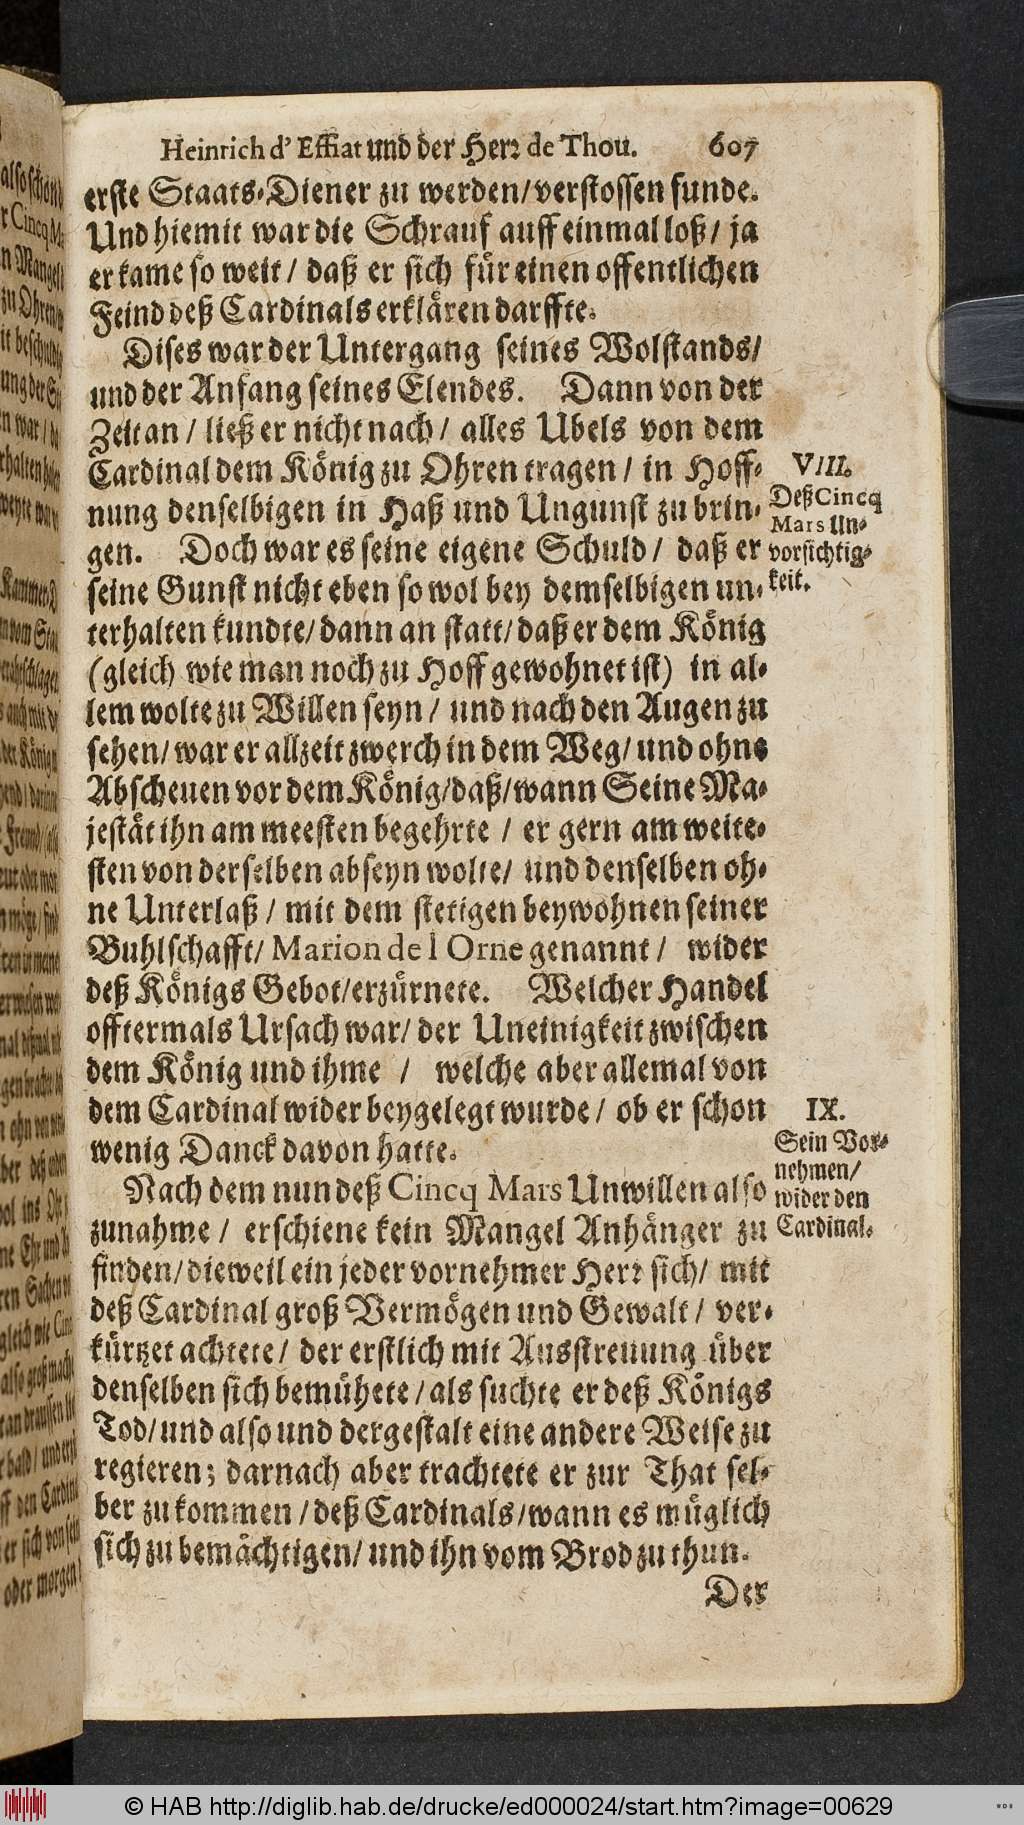 Heinrich d' Effiat und der Herꝛ de Thou. 607
erste Staats-Diener zu werden/verstossen funde.
Und hiemit war die Schrauf auff einmal loß/ ja
er kame so weit / daß er sich für einen offentlichen
Feind deß Cardinals erklären darffte.
Dises war der Untergang seines Wolstands/
und der Anfang seines Elendes. Dann von der
Zeit an / ließ er nicht nach/ alles Ubels von dem
Cardinal dem König zu Ohren tragen / in Hoff-
nung denselbigen in Haß und Ungunst zu brin-
gen. Doch war es seine eigene Schuld/ daß er
seine Gunst nicht eben so wol bey demselbigen un-
terhalten kundte/ dann an statt/ daß er dem König
(gleich wie man noch zu Hoff gewohnet ist) in al-
lem wolte zu Willen seyn / und nach den Augen zu
sehen/ war er allzeit zwerch in dem Weg/ und ohne
Abscheuen vor dem König/daß/wann Seine Ma-
jestät ihn am meesten begehrte / er gern am weite-
sten von derselben abseyn wolte/ und denselben oh-
ne Unterlaß / mit dem stetigen beywohnen seiner
Buhlschafft/ Marion de l Orne genannt / wider
deß Königs Gebot/erzürnete. Welcher Handel
offtermals Ursach war/ der Uneinigkeit zwischen
dem König und ihme / welche aber allemal von
dem Cardinal wider beygelegt wurde / ob er schon
wenig Danck davon hatte.
Nach dem nun deß Cincq Mars Unwillen also
zunahme / erschiene kein Mangel Anhänger zu
finden/ dieweil ein jeder vornehmer Herꝛ sich/ mit
deß Cardinal groß Vermögen und Gewalt / ver-
kürtzet achtete / der erstlich mit Ausstreuung über
denselben sich bemühete / als suchte er deß Königs
Tod/ und also und dergestalt eine andere Weise zu
regieren; darnach aber trachtete er zur That sel-
ber zu kommen / deß Cardinals/wann es müglich
sich zu bemächtigen/ und ihn vom Brod zu thun.
Der
VIII.
Deß Cincq
Mars Un-
vorsichtig-
keit.
IX.
Sein Vor-
nehmen/
wider den
Cardinal.
© HAB http://diglib.hab.de/drucke/ed000024/start.htm?image=00629